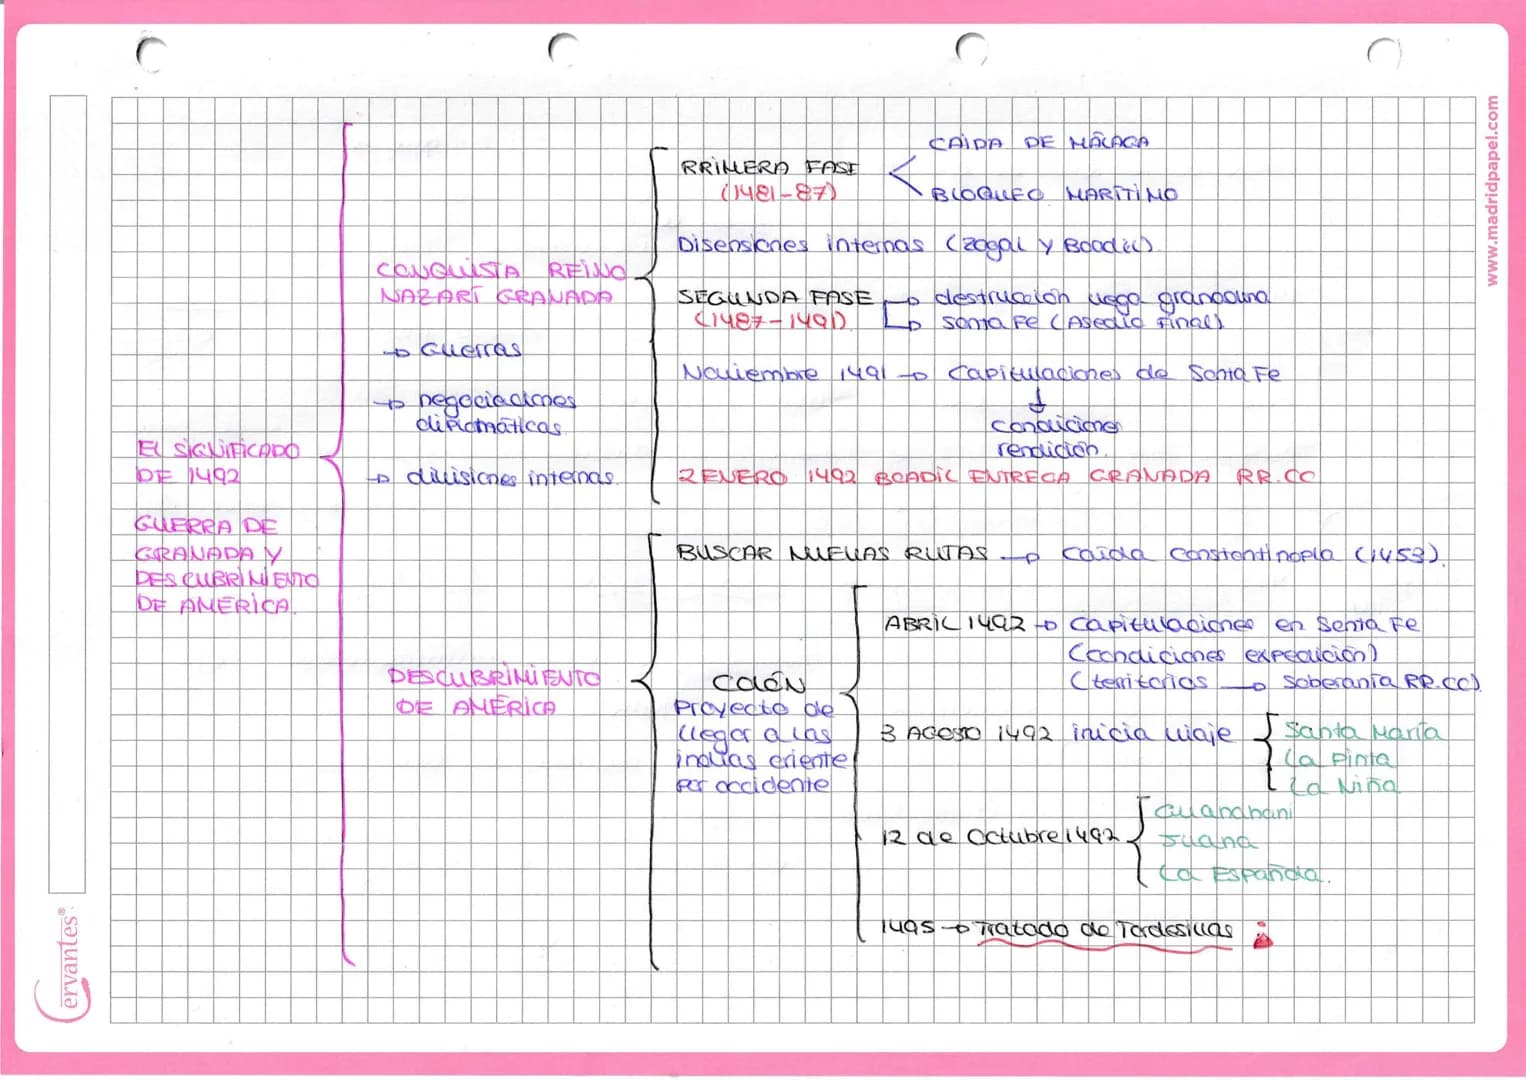 www.madridpapel.com
Cervantes®
El SIGNIFICADO
DE 1492
GUERRA DE
GRANADA Y
DESCUBRIMIENTO
DE AMÉRICA.
CONQUISTA REINO
NAZARÍ GRANADA
→ Guerras
→ negociaciones
diplomáticas.
→ divisiones internas.
RRIMERA FASE
(1481-87)
CAÍDA DE MÁLAGA
BLOQUEO MARÍTIMO
Disensiones internas (Zagal y Boadil).
SEGUNDA FASE
(1487-1491)
→ destrucción vega granadina
→ Santa Fe (Asedio Final)
Noviembre 1491 → Capitulaciones de Santa Fe
↓
condiciones
rendición.
2 ENERO 1492 BOADIL ENTREGA GRANADA RR.CC
DESCUBRIMIENTO
DE AMÉRICA
BUSCAR NUEVAS RUTAS → Caída Constantinopla (1453).
COLÓN
Proyecto de
llegar a las
indias oriente
por occidente
ABRIL 1492 → Capitulaciones en Santa Fe
(condiciones expedición)
(territorios → Soberanía RR.CC).
3 AGOSTO 1492 inicia viaje
Santa María
La Pinta
La Niña
12 de Octubre 1492
Guanahani
Juana
La Española.
1495 → Tratado de Tordesillas